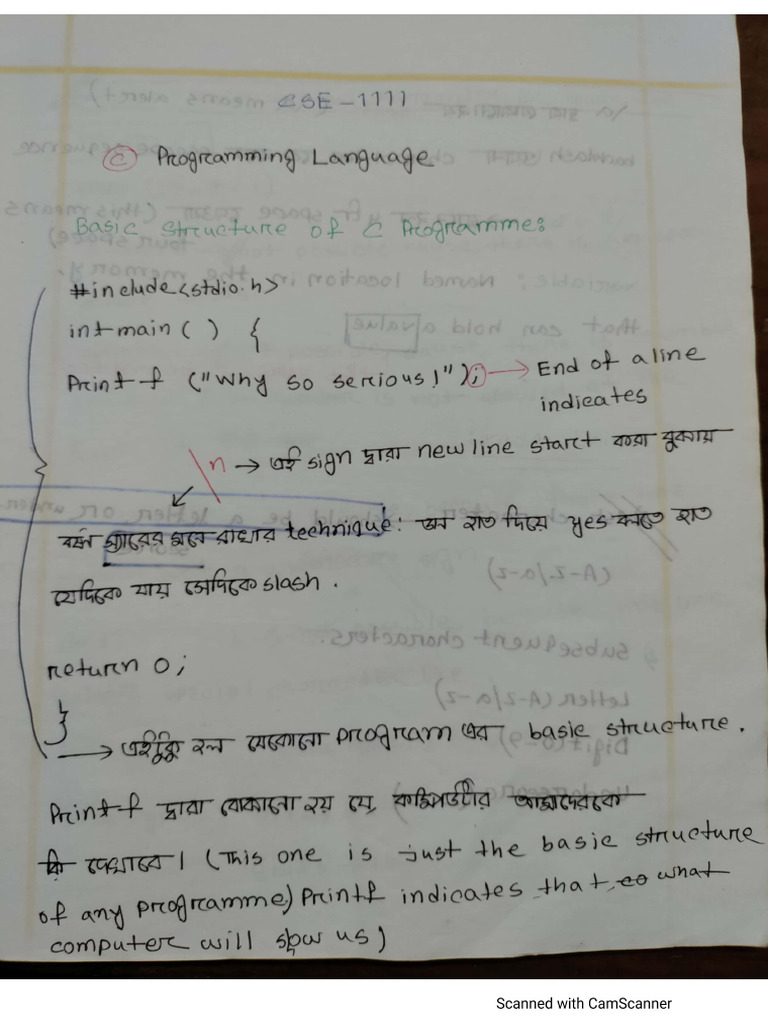 CSE-1111
C Programming Language
Basic Structure of C Programme:
#include<stdio.h>
int main ( ) {
Printf ("Why so serious!"); → End of a line
indicates
\n → এই sign দ্বারা new line start করা বুঝায়
মনে রাখার technique: ডান হাত দিয়ে yes করতে হাত
যেদিকে যায় সেদিকে slash.
return 0;
}
→ এইটুকু হল যেকোনো program এর basic structure.
Printf দ্বারা বোঝানো হয় যে, কম্পিউটার আমাদেরকে
কি দেখাবে। (This one is just the basic structure
of any programme) Printf indicates that so what
computer will show us)
Scanned with CamScanner